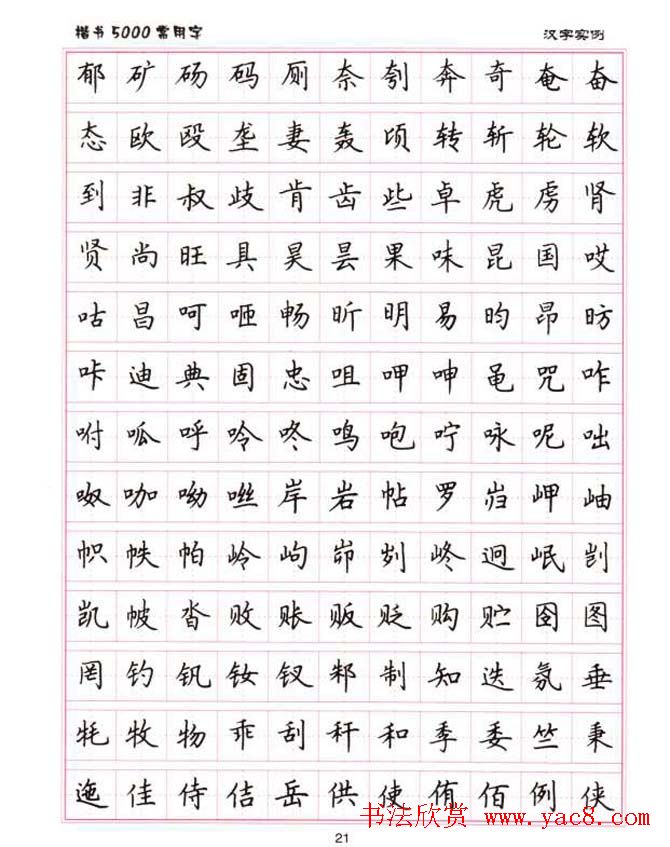 楷书5000常用字 汉字实例
郁矿砀码厕奈刳奔奇奄奋
态欧殴垄妻轰顷转斩轮软
到非叔歧肯齿些卓虎虏肾
贤尚旺具昊昙果味昆国哎
咕昌呵咂畅昕明易昀昂昉
咔迪典固忠咀呷呻黾咒咋
咐呱呼呤咚鸣咆咛咏呢咄
呶咖呦咝岸岩帖罗岿岬岫
帜帙帕岭岣峁刿峂迥岷剀
凯帔沓败账贩贬购贮囹图
罔钓钒钕钗邾制知迭氛垂
牦牧物乖刮秆和季委竺秉
迤佳侍佶岳供使侑佰例侠
书法欣赏 www.yac8.com
21